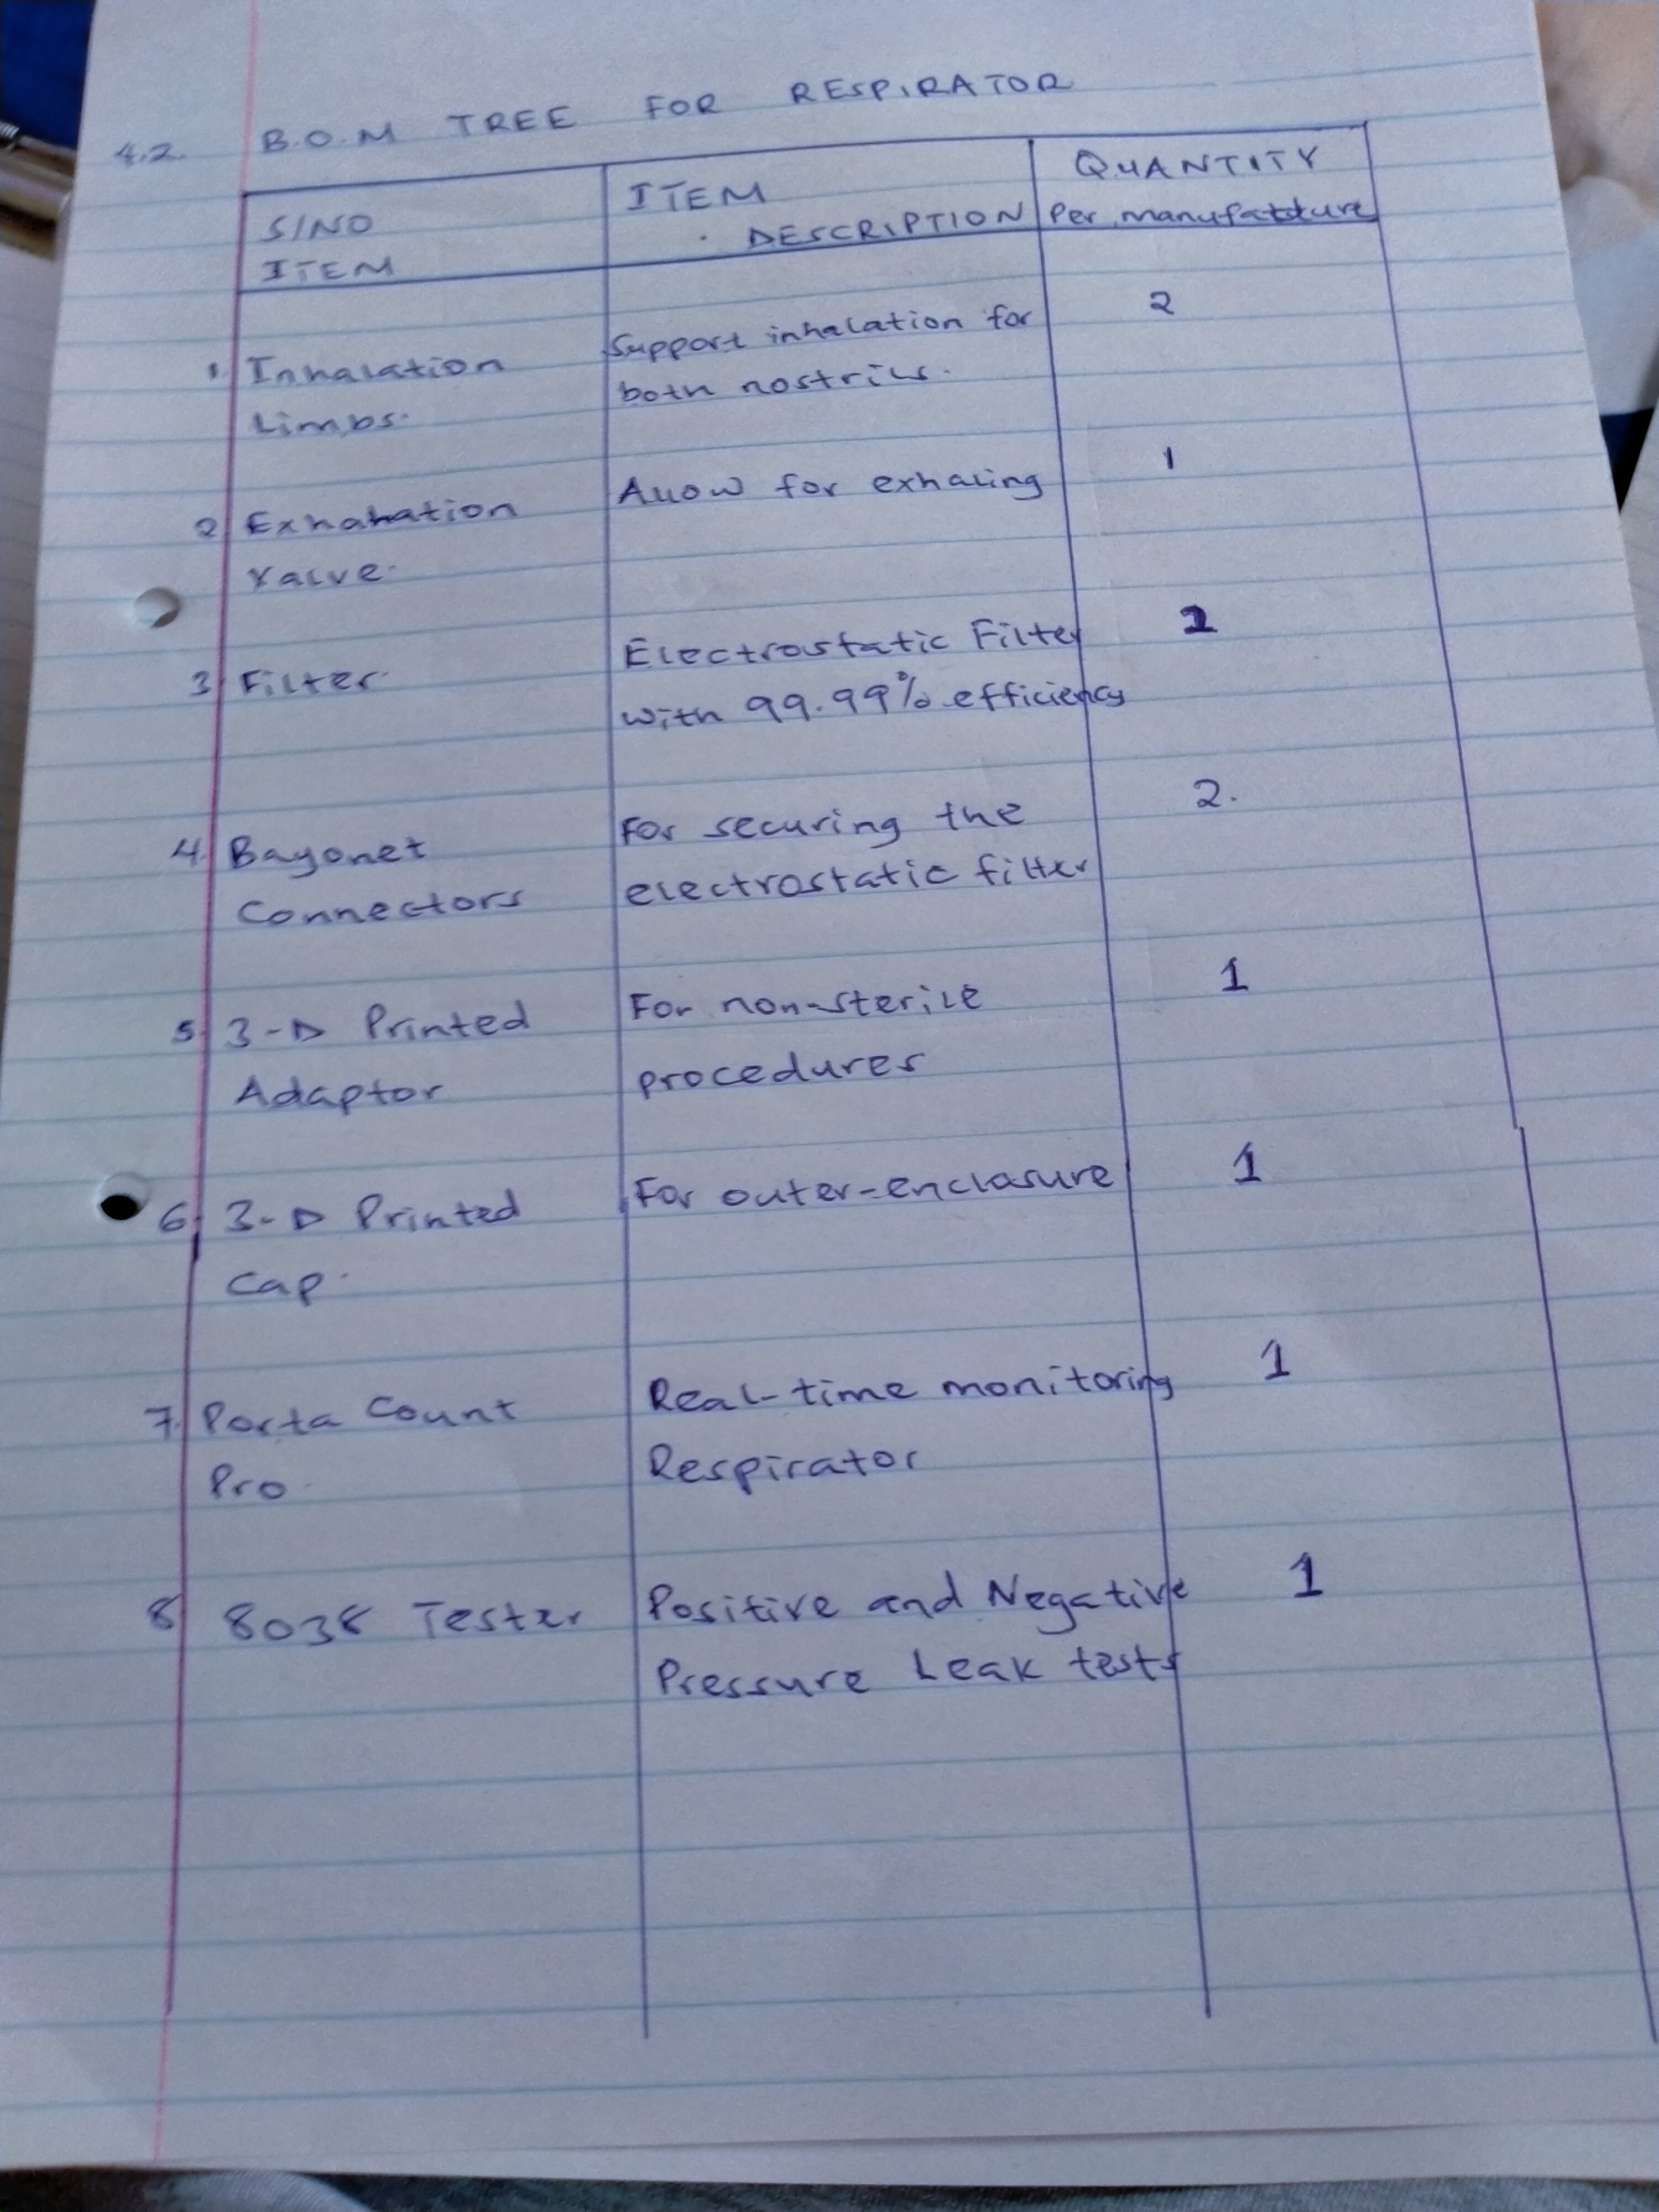 4.2. B.O.M TREE FOR RESPIRATOR
S/NO ITEM
ITEM DESCRIPTION
QUANTITY Per manufacture
1. Inhalation Limbs.
Support inhalation for both nostrils.
2
2. Exhalation Valve.
Allow for exhaling
1
3. Filter.
Electrostatic Filter with 99.99% efficiency
4. Bayonet Connectors
For securing the electrostatic filter
2.
5. 3-D Printed Adaptor
For non-sterile procedures
1
6. 3-D Printed Cap.
For outer-enclosure
1
7. Porta Count Pro.
Real-time monitoring Respirator
1
8. 8038 Tester
Positive and Negative Pressure Leak tests
1